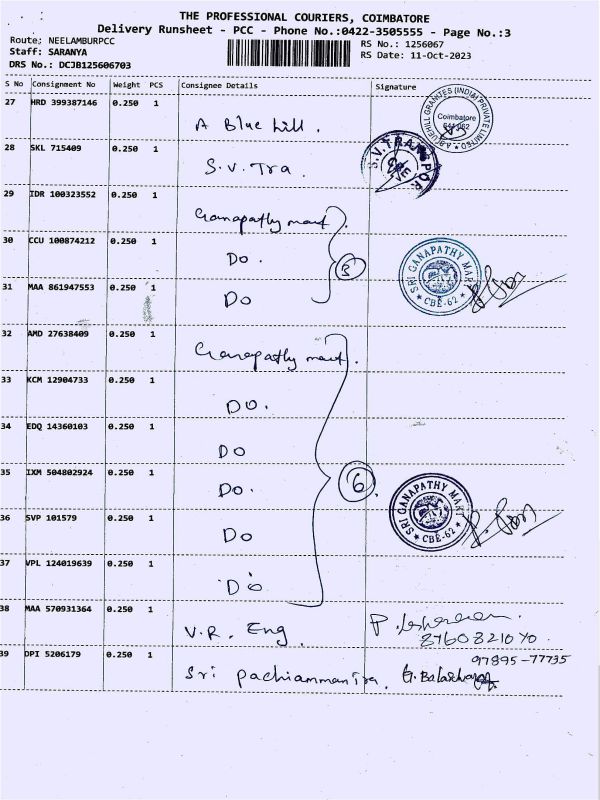 THE PROFESSIONAL COURIERS, COIMBATORE
Delivery Runsheet - PCC - Phone No.:0422-3505555 - Page No.:3
Route: NEELAMBURPCC
Staff: SARANYA
DRS No.: DCJB125606703
RS No.: 1256067
RS Date: 11-Oct-2023
S No Consignment No Weight PCS Consignee Details Signature
27 HRD 399387146 0.250 1
A Blue hill.
A BLUEHILL GRANITES (INDIA) PRIVATE LIMITED
Coimbatore
641 062
28 SKL 715409 0.250 1
S.V. Tra.
S.V. TRANSPOR
29 IDR 100323552 0.250 1
Ganapathy mart.
30 CCU 100874212 0.250 1
Do.
3
SRI GANAPATHY MART
* CBE-62 *
31 MAA 861947553 0.250 1
Do
32 AMD 27638409 0.250 1
Ganapathy mart.
33 KCM 12904733 0.250 1
Do.
34 EDQ 14360103 0.250 1
Do
35 IXM 504802924 0.250 1
Do.
6
SRI GANAPATHY MART
* CBE-62 *
36 SVP 101579 0.250 1
Do
37 VPL 124019639 0.250 1
Do
38 MAA 570931364 0.250 1
V.R. Eng
39 DPI 5206179 0.250 1
97895-77735
Sri pachiammantra.